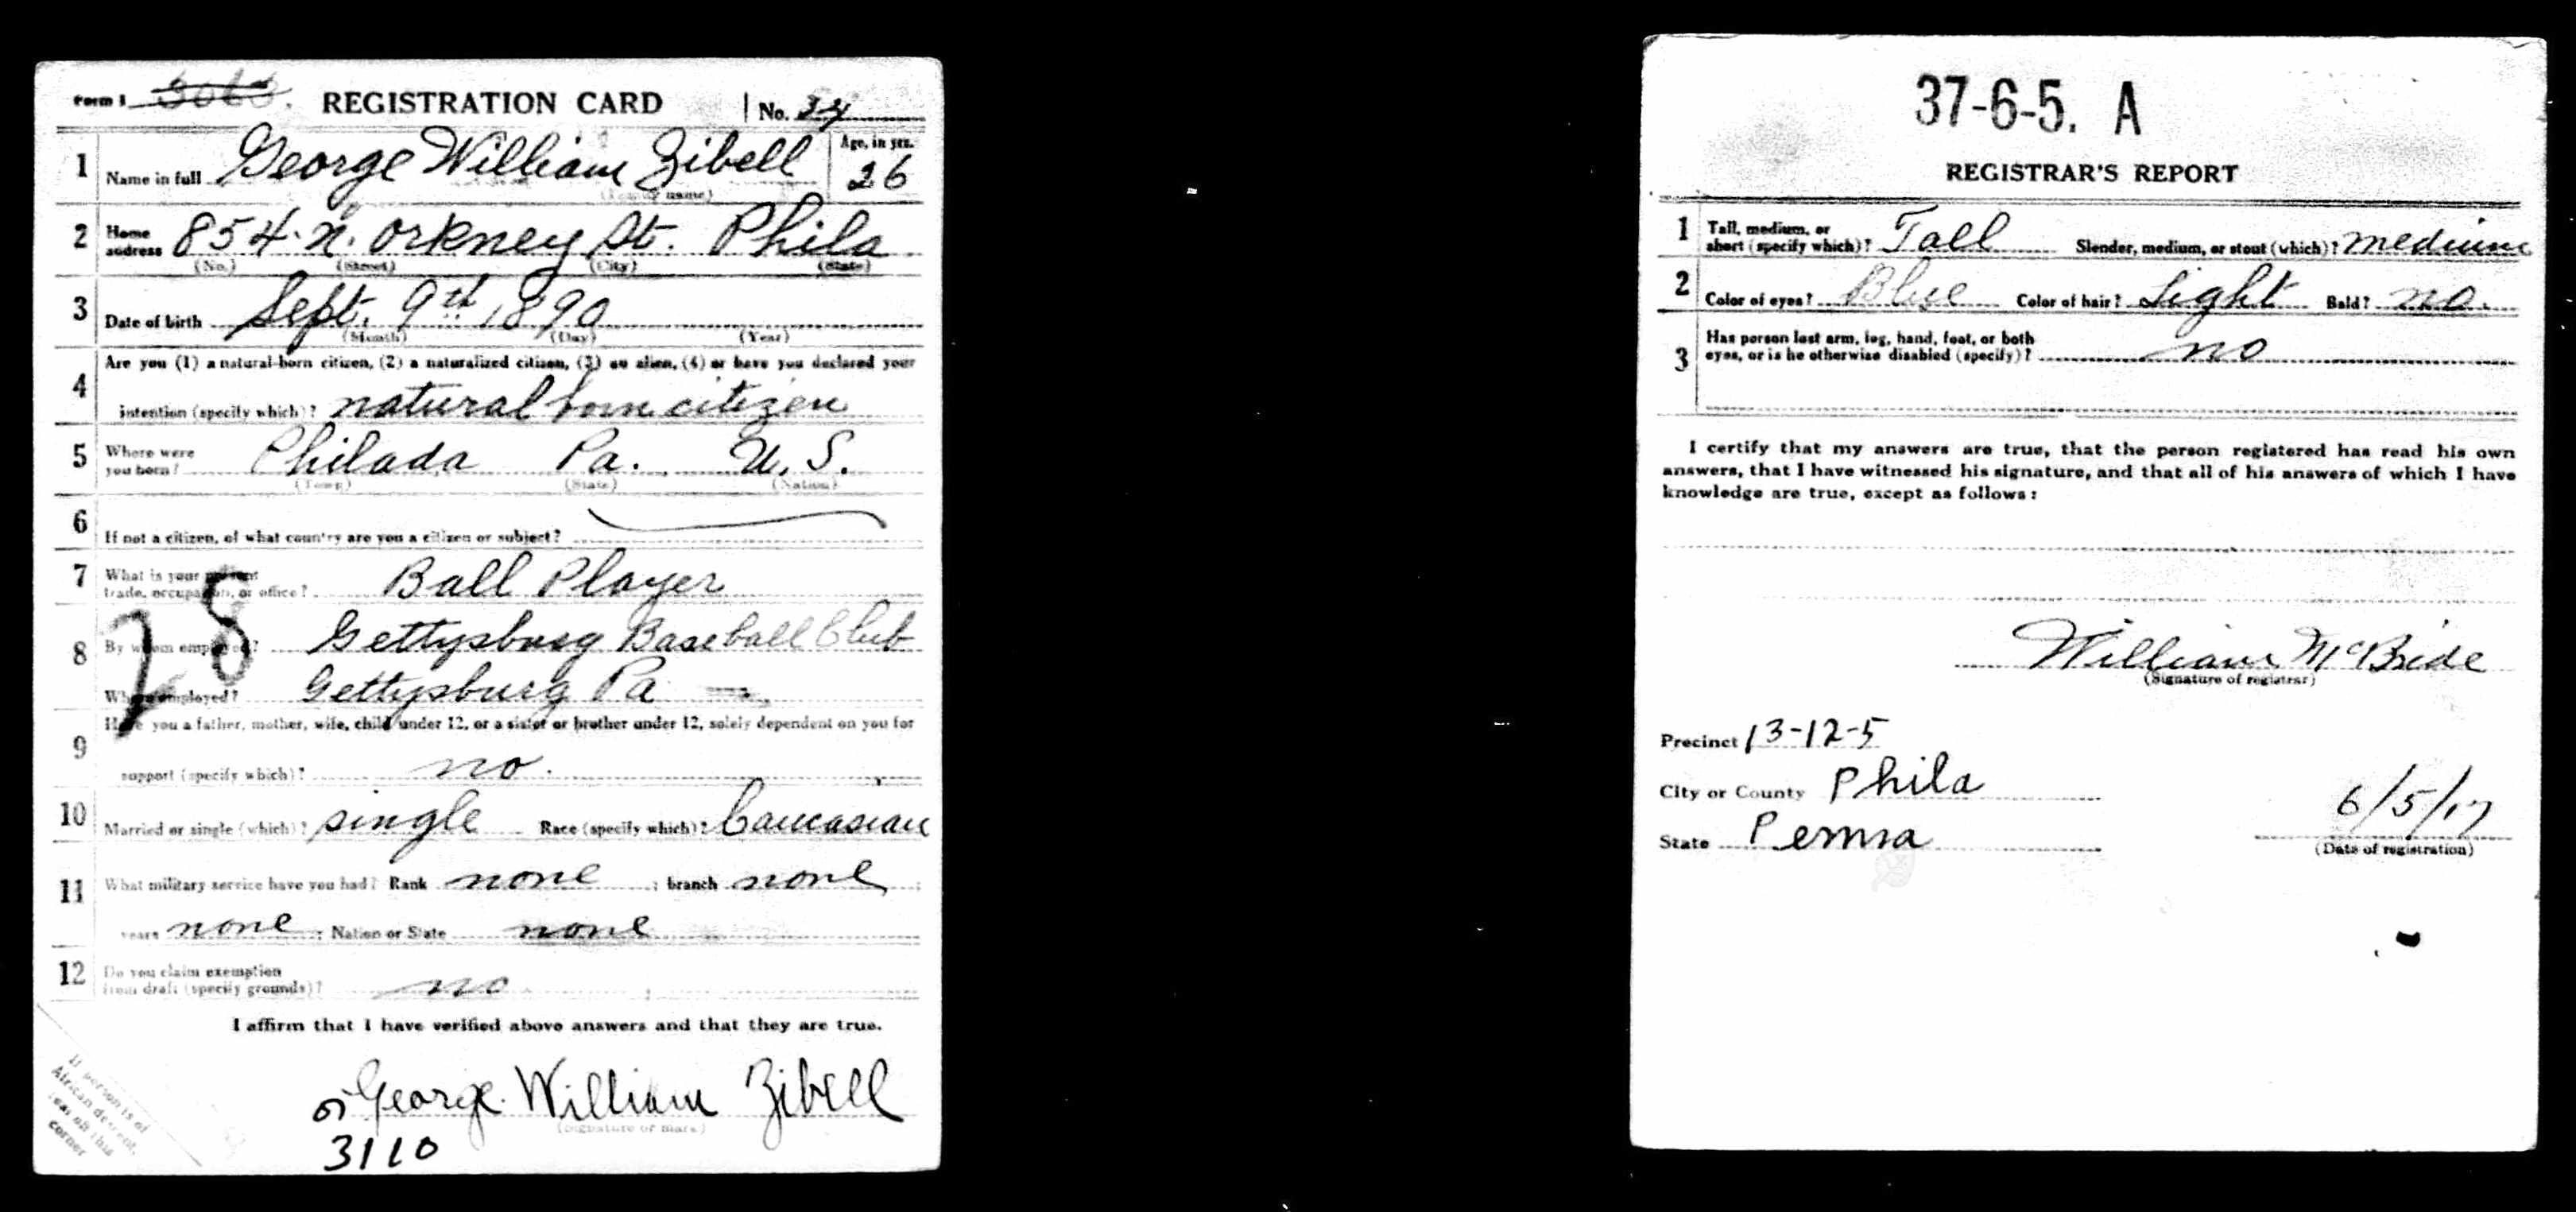 Form 1 3063. REGISTRATION CARD No. 34
1 Name in full George William Zibell Age, in yrs. 26
(Family name)
2 Home address 854 N. Orkney St. Phila
(No.) (Street) (City) (State)
3 Date of birth Sept. 9th 1890
(Month) (Day) (Year)
4 Are you (1) a natural-born citizen, (2) a naturalized citizen, (3) an alien, (4) or have you declared your
intention (specify which)? natural born citizen
5 Where were you born? Philada Pa. U. S.
(Town) (State) (Nation)
6 If not a citizen, of what country are you a citizen or subject?
7 What is your present trade, occupation, or office? Ball Player
28
8 By whom employed? Gettysburg Baseball Club
Where employed? Gettysburg Pa
9 Have you a father, mother, wife, child under 12, or a sister or brother under 12, solely dependent on you for
support (specify which)? no.
10 Married or single (which)? single Race (specify which)? Caucasian
11 What military service have you had? Rank none ; branch none ;
years none ; Nation or State none
12 Do you claim exemption from draft (specify grounds)? no
I affirm that I have verified above answers and that they are true.
George William Zibell
(Signature or mark)
3110
If person is of
African descent,
tear off this
corner
37-6-5. A
REGISTRAR'S REPORT
1 Tall, medium, or short (specify which)? Tall Slender, medium, or stout (which)? medium
2 Color of eyes? Blue Color of hair? Light Bald? no.
3 Has person lost arm, leg, hand, foot, or both
eyes, or is he otherwise disabled (specify)? no
I certify that my answers are true, that the person registered has read his own
answers, that I have witnessed his signature, and that all of his answers of which I have
knowledge are true, except as follows:
William McBride
(Signature of registrar)
Precinct 13-12-5
City or County Phila
State Penna
6/5/17
(Date of registration)